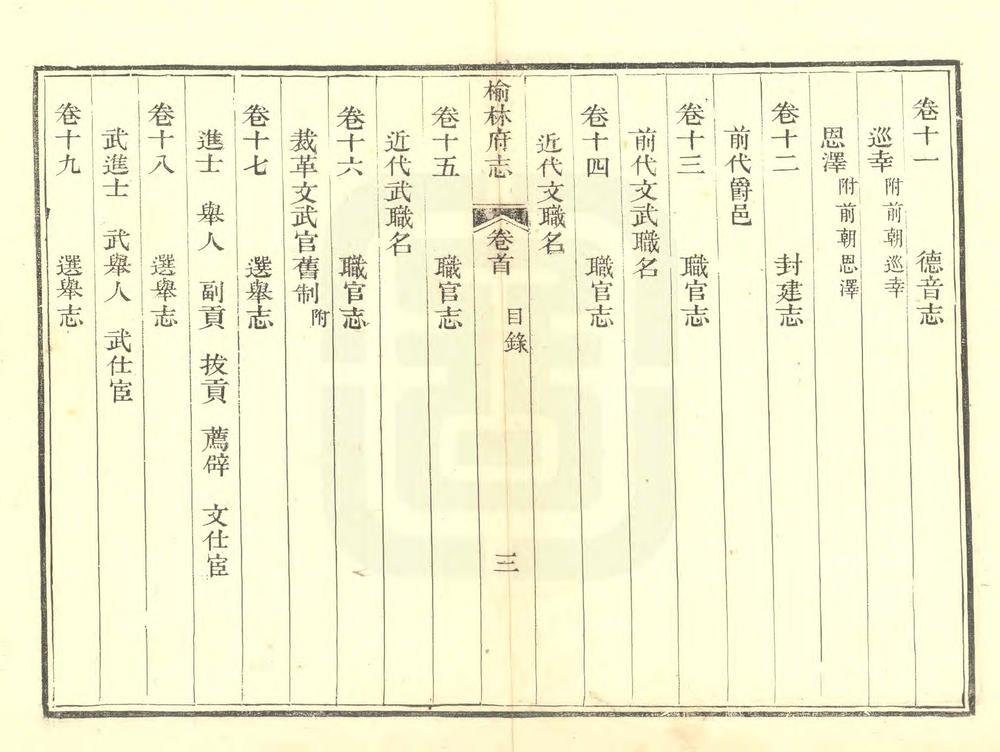 卷十一 德音志
巡幸附前朝巡幸
恩澤附前朝恩澤
卷十二 封建志
前代爵邑
卷十三 職官志
前代文武職名
卷十四 職官志
近代文職名
榆林府志 卷首 目錄 三
卷十五 職官志
近代武職名
卷十六 職官志
裁革文武官舊制附
卷十七 選舉志
進士 舉人 副貢 拔貢 薦辟 文仕宦
卷十八 選舉志
武進士 武舉人 武仕宦
卷十九 選舉志